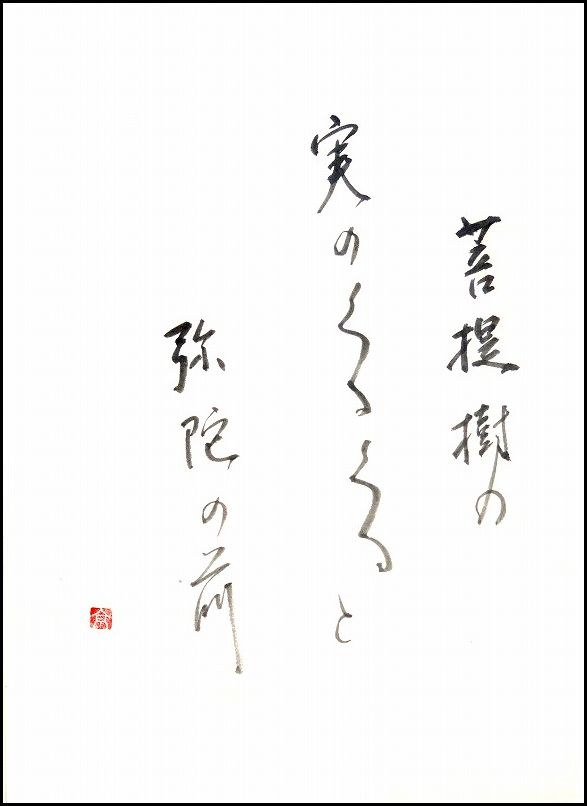 菩提樹の
実のくるくると
弥陀の前